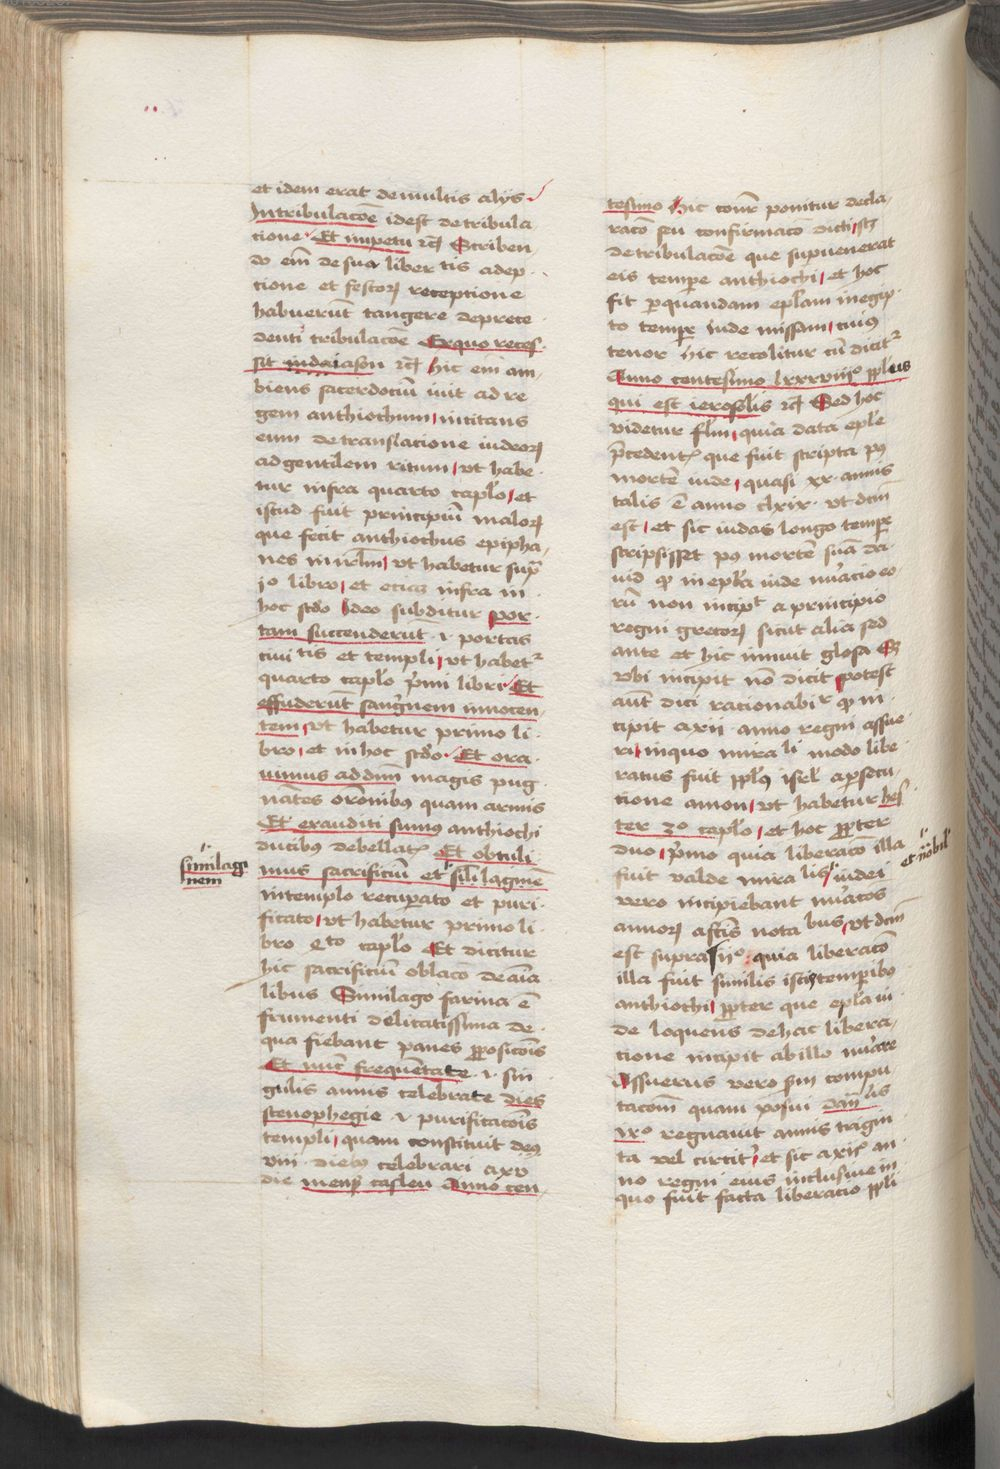 et idem erat de multis alijs
In tribulacōe idest de tribula
tione Et impetu rc̄ Scriben
do em̄ de sua liber tis adep
tione et festoꝝ receptione
habuerūt tangere de prece
denti tribulacōe Ex quo reces
sit iason rc̄ hic em̄ am
biens sacerdotiū iuit ad re
gem anthiochum incitans
eum de translacione iudeoꝝ
ad gentilem ritum vt habe
tur infra quarto caplo et
istud fuit principiū maloꝝ
que fecit anthiochus epipha
nes in irl̄m vt habetur sup̄
jo libro et etiaʒ infra in
hoc scd̄o ideo subditur por
tam succenderūt .i. portas
ciui tis et templi vt habetᷣ
quarto caplo p̄mi libri Et
effuderūt sanguinem innocen
tem vt habetur primo li
bro et in hoc scd̄o Et ora
uimus ad dnm̄ magis pug
nātes orōnibꝰ quam armis
Et exauditi sumꝰ anthiochi
ducibꝰ debellatꝭ Et obtuli
mus sacrificiū et sili laginē
in templo recuperato et puri
ficato vt habetur primo li
bro qto caplo Et dicitur
hic sacrificiū oblaco de aīa
libus Similago farina ē
frumenti delicatissima de
qua fiebant panes ꝓposicōis
Et nūc frequētate .i. sin
gulis annis celebrate dies
scenophegie .i. purificacōis
templi quam constituit deꝰ
viii diebꝰ celebrari a xxv
die mensꝭ casleu Anno cen
similagi
nem
tesimo Hic cōnr̄ ponitur decla
racō seu confirmacō dicti scʒ
de tribulacōe que supuenerat
eis tempe anthiochi et hoc
fit per quandam eplam in egip
to tempe iude missam cuiꝰ
tenor hic recolitur cū dicitᷣ
Anno centesimo lxxxviiiº pplus
qui est ierosolis rc̄ Sed hoc
videtur flm̄ quia data eple
p̄cedentꝭ que fuit scripta pꝰ
mortē iude quasi xx annis
talis ē anno clxix vt dcm̄
est et sic iudas longo tempe
scripsisset pꝰ mortē suā
ꝙ in epl̄a iude nūacio eo
rū non incipit a principio
regni grecoꝝ sicut alia sed
ante et hic innuit glosa
vbi incipit nō dicit potest
aūt dici racionabir ꝙ in
cipit a xii anno regni assue
ri in quo mira li modo libe
ratus fuit pplꝰ isrl̄ a persecu
tione amon vt habetur hes
ter 3º caplo et hoc ꝓpter
duo p̄mo quia liberacō illa
fuit valde mira lis iudei
vero incipiebant nūacōs
annoꝝ a factis nota bus vt dcm̄
est supra iiº quia liberacō
illa fuit similis isti temporibꝰ
anthiochi ꝓpter que epl̄a iu
de loquens de hac libera
tione incipit ab illo nūare
Assuerus vero scd̄m compu
tacōm quam posui dan lis
ixº regnauit annis tragin
ta vel circit et sic a xiiº an
no regni eius inclusiue in
quo fuit facta liberacio ppli